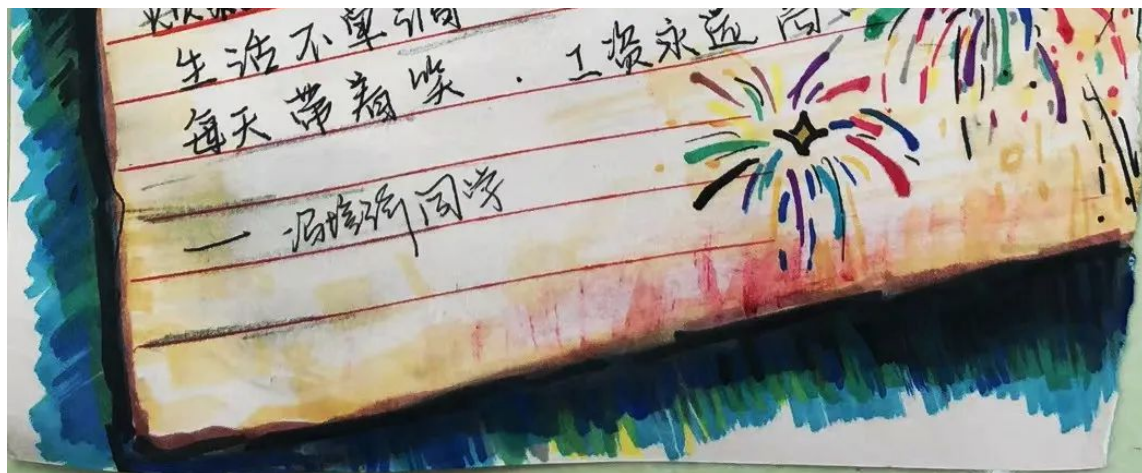 生活不单调
每天带着笑，工资永远高
— 冯培新同学